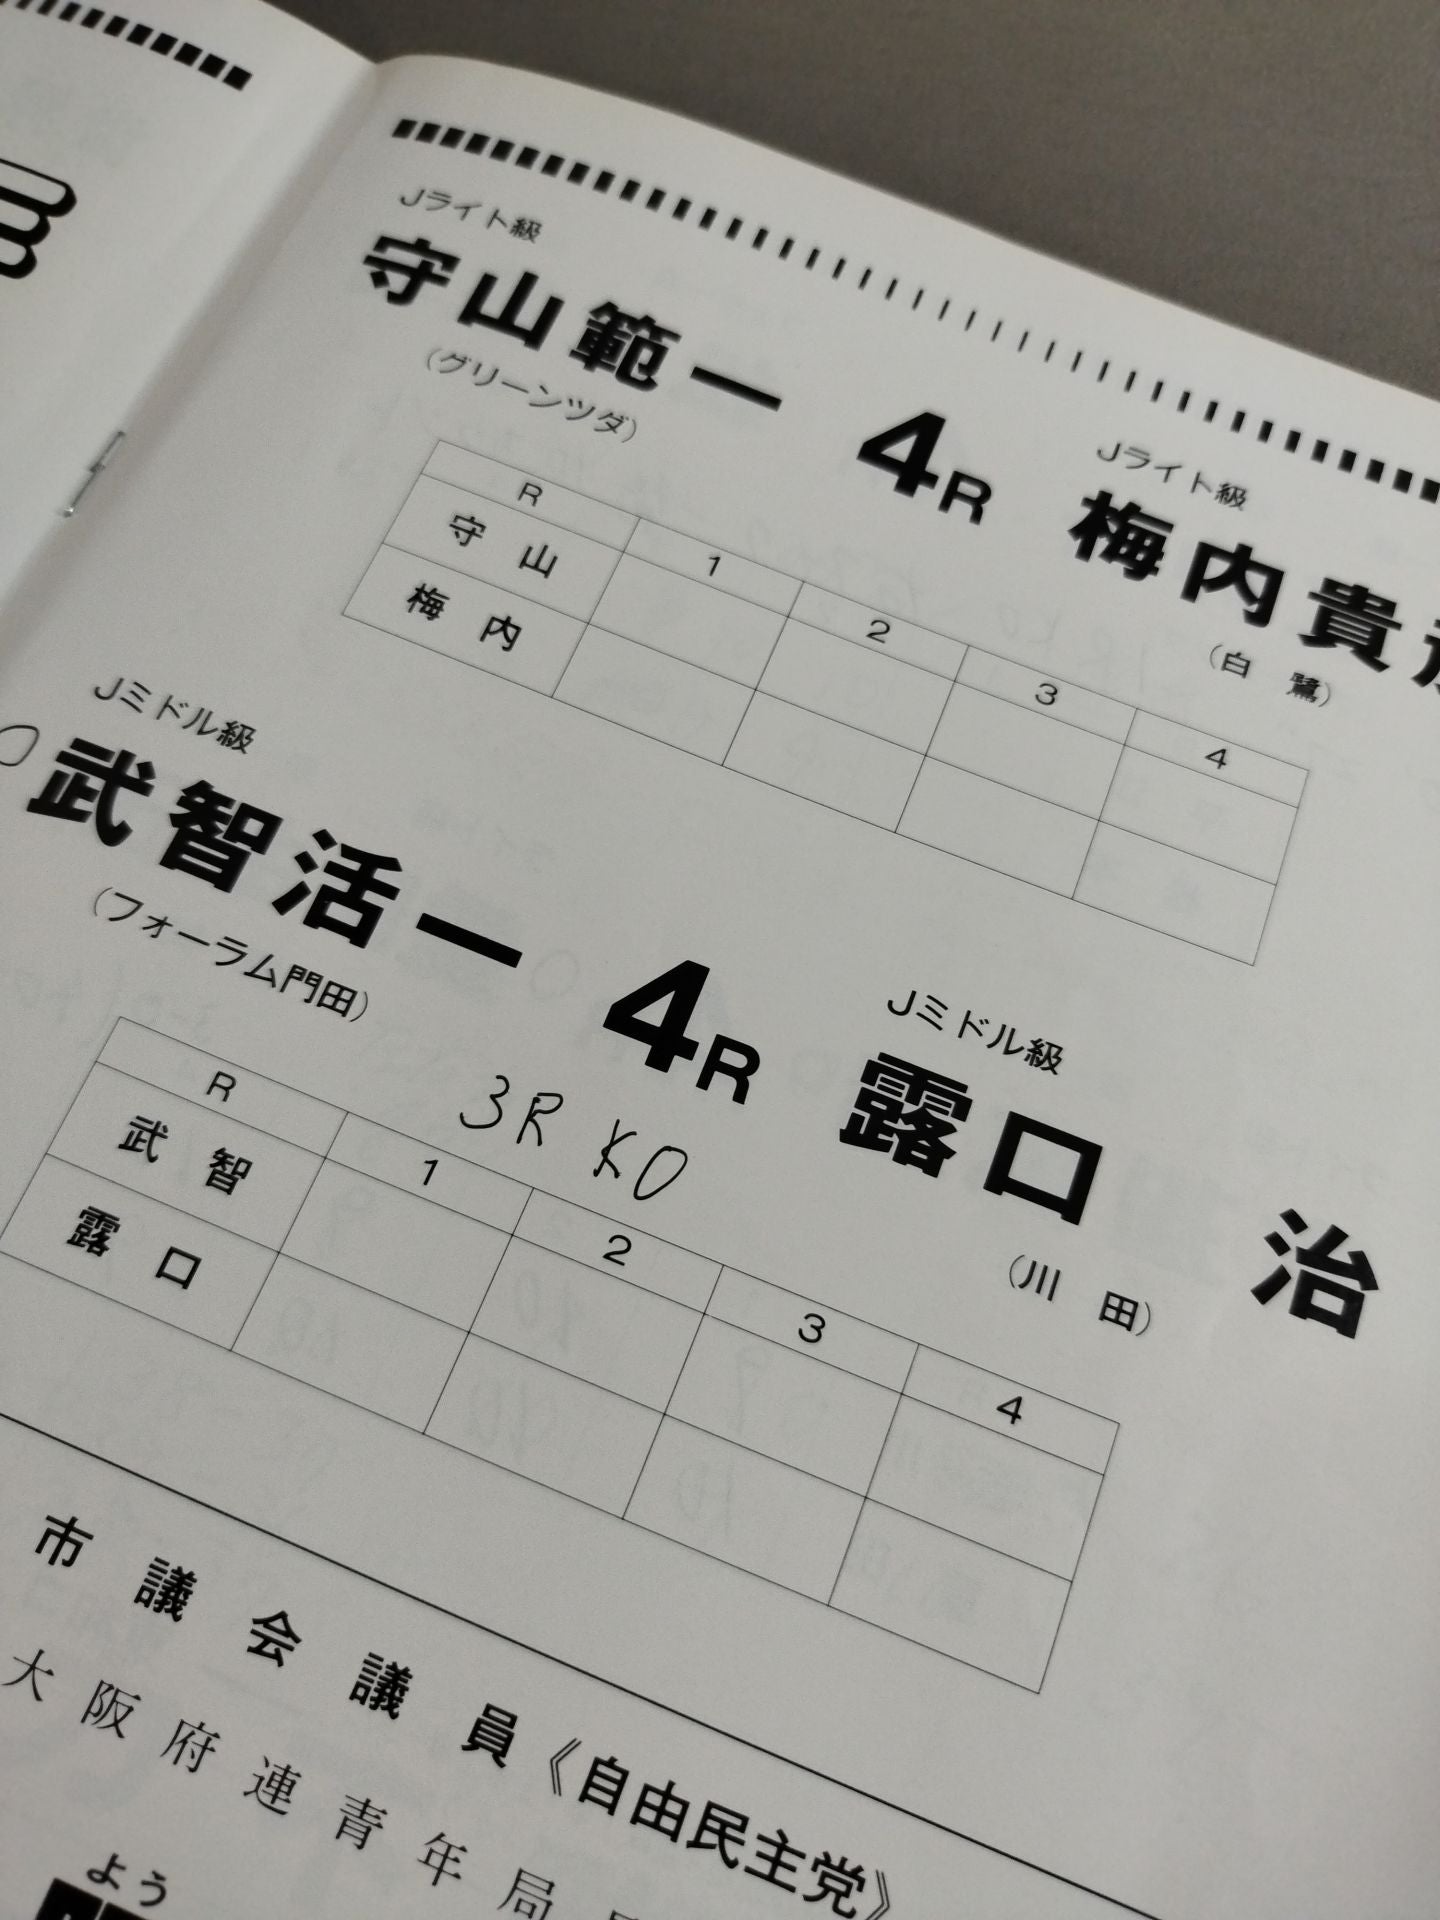 Jライト級
守山範一
(グリーンツダ)
4R
Jライト級
梅内貴
(白 鷺)
R 1 2 3 4
守 山
梅 内
Jミドル級
○武智活一
(フォーラム門田)
4R
Jミドル級
露口 治
(川 田)
3R KO
R 1 2 3 4
武 智
露 口
市議会議員《自由民主党》
大阪府連青年局
よう